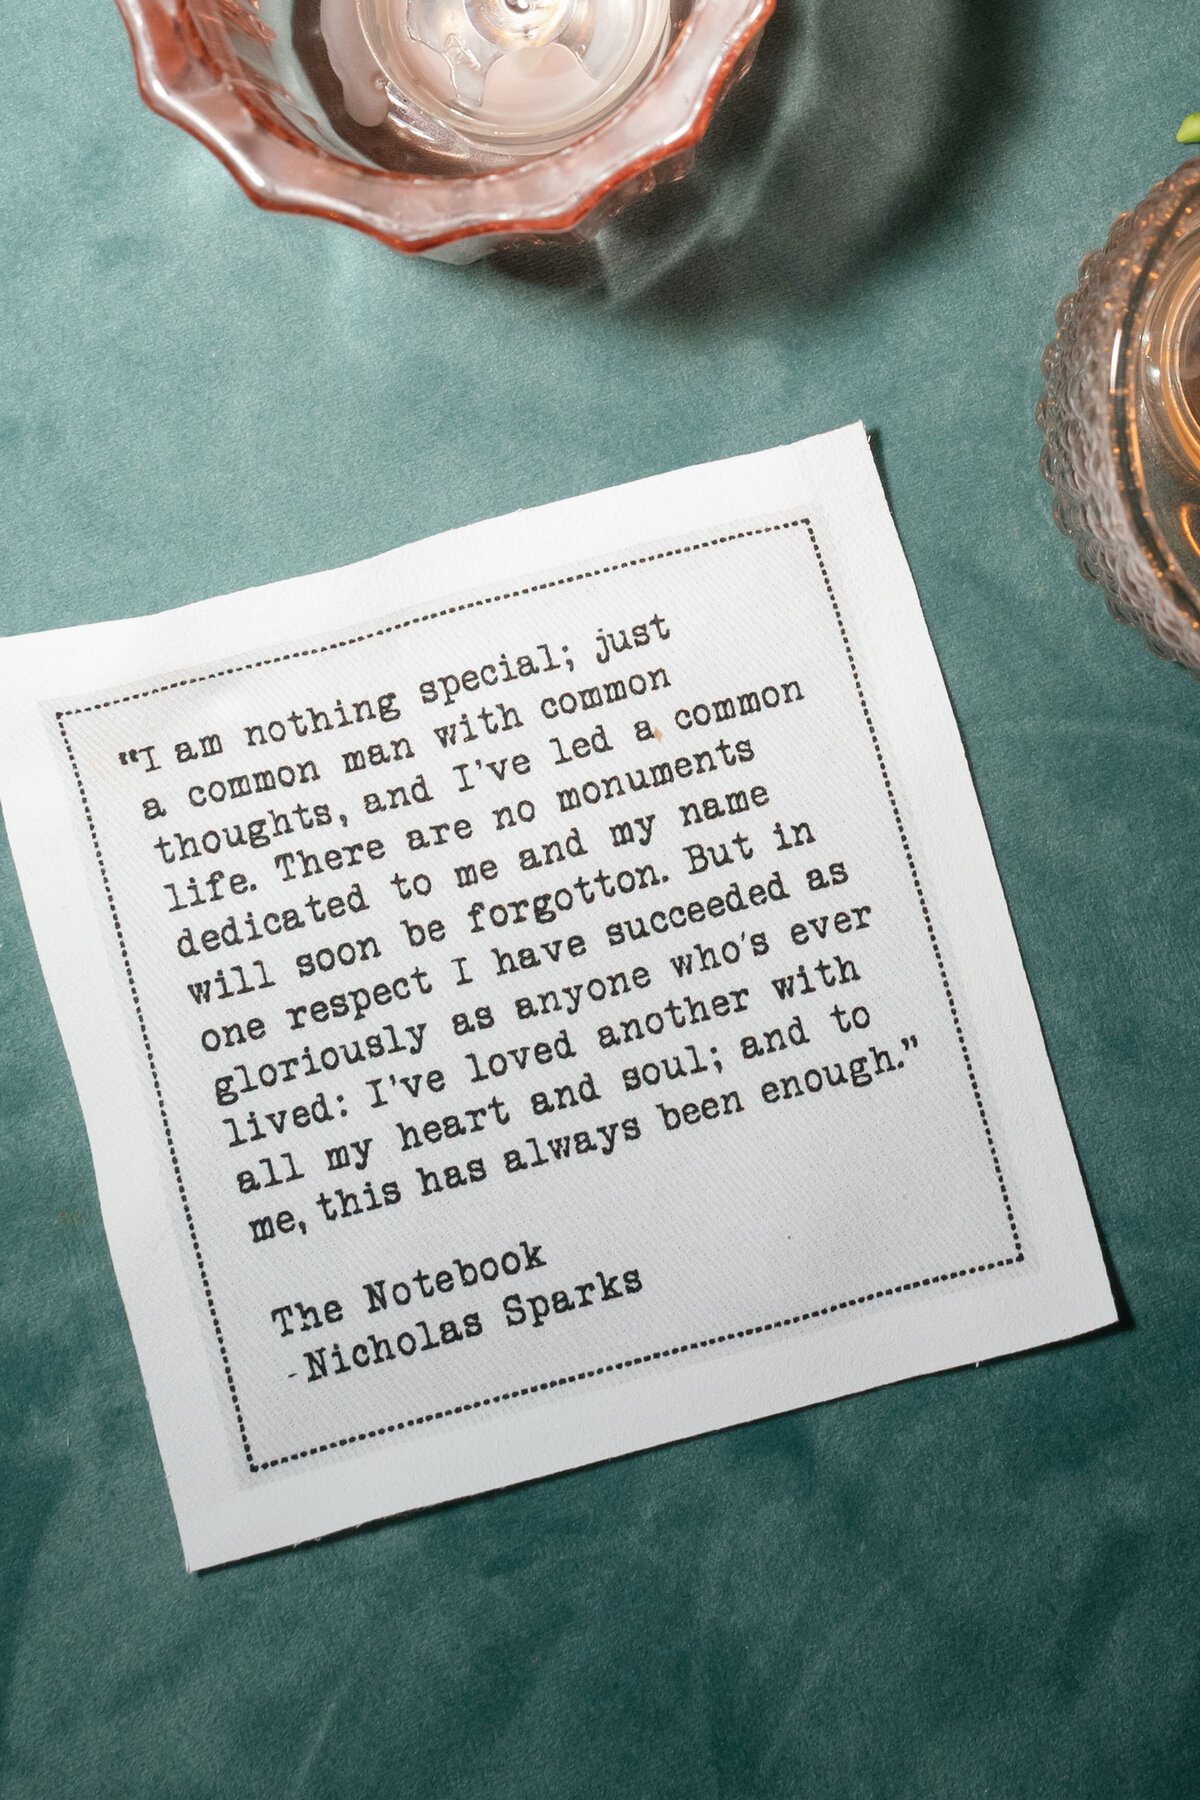 “I am nothing special; just
a common man with common
thoughts, and I've led a common
life. There are no monuments
dedicated to me and my name
will soon be forgotton. But in
one respect I have succeeded as
gloriously as anyone who's ever
lived: I've loved another with
all my heart and soul; and to
me, this has always been enough.”
The Notebook
-Nicholas Sparks